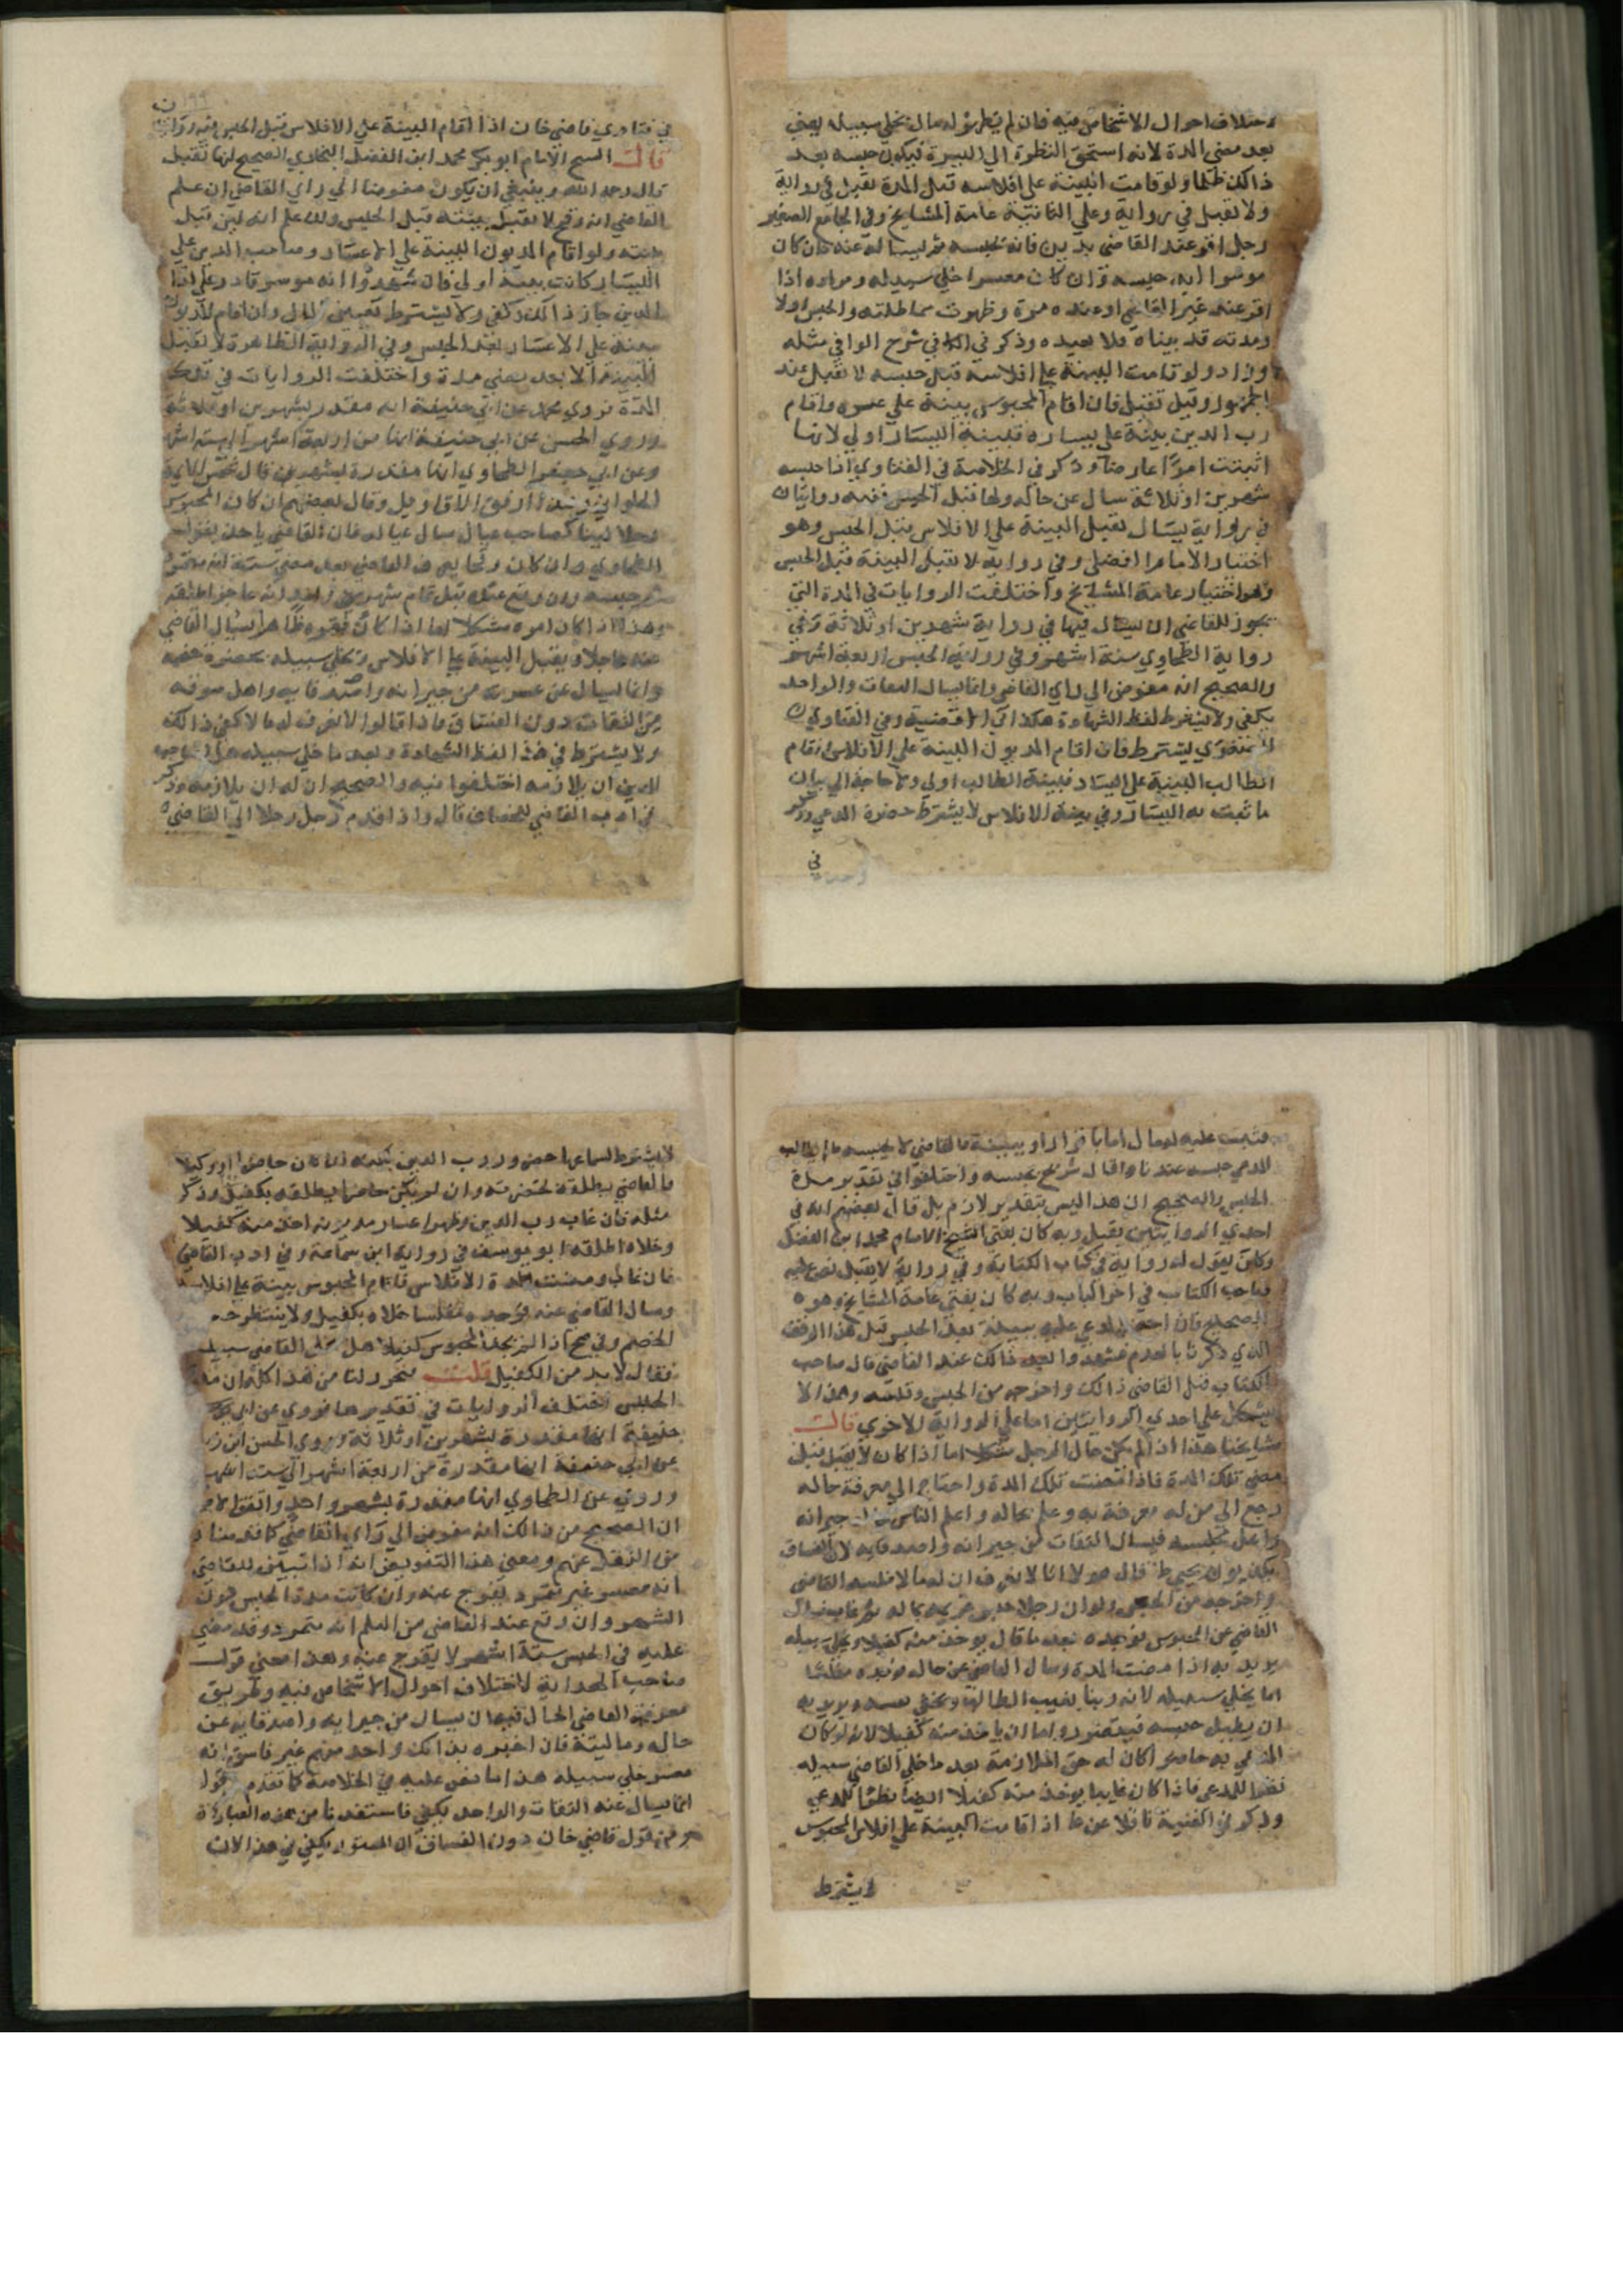 لاختلاف احوال الاشخاص فيه فان لم يظهر له مال يخلي سبيله يعني
بعد مضي المدة لانه استحق النظرة الي الميسرة فيكون حبسه بعد
ذالك ظلما ولو قامت البينة علي افلاسه قبل المدة تقبل في رواية
ولا تقبل في رواية وعلي الثانية عامة المشايخ وفي الجامع الصغير
رجل اقر عند القاضي بدين فانه يحبسه ثم يسال عنه فان كان
موسرا ابد حبسه وان كان معسرا خلي سبيله ومراده اذا
اقر عند غير القاضي او عنده مرة وظهرت مماطلته والحبس اولا
ومدته قد بيناه فلا نعيده وذكر في الكافي شرح الوافي مثله
وزاد ولو قامت البينة علي افلاسه قبل حبسه لا تقبل عند
وقيل تقبل فان اقام المحبوس بينة علي عسره واقام
رب الدين بينة علي يساره فبينة اليسار اولي لانها
اثبتت امرا عارضا وذكر في الخلاصة في الفتاوي اذا حبسه
شهرين او ثلاثة سال عن حاله واما قبل الحبس ففيه روايتان
في رواية يسال تقبل البينة علي الافلاس قبل الحبس وهو
اختيار الامام الفضلي وفي رواية لا تقبل البينة قبل الحبس
وهو اختيار عامة المشايخ واختلفت الروايات في المدة التي
يجوز للقاضي ان يسال فيها في رواية شهرين او ثلاثة وفي
رواية الطحاوي ستة اشهر وفي رواية الحبس اربعة اشهر
والصحيح انه مفوض الي راي القاضي وانما يسال الثقات والواحد
يكفي ولا يشترط لفظ الشهادة هكذا في الاقضية وفي الفتاوي
يشترط فان اقام المديون البينة علي الافلاس واقام
الطالب البينة علي اليسار فبينة الطالب اولي ولا حاجة الي بيان
ما ثبت به اليسار وفي بينة الافلاس لا يشترط حضرة المدعي وذكر
في
في فتاوي قاضي خان اذا اقام البينة علي الافلاس قبل الحبس فيه روايتان
قال الشيخ الامام ابو بكر محمد ابن الفضل البخاري الصحيح انها تقبل
قال رحمه الله وينبغي ان يكون مفوضا الي راي القاضي ان علم
القاضي انه وقح لا تقبل بينته قبل الحبس وان علم انه لين قبل
بينته ولو اقام المديون البينة علي الاعسار وصاحب الدين علي
اليسار كانت بينة اولي فان شهدوا انه موسر قادر علي اذا
الدين جاز ذالك وكفي ولا يشترط تعيين المال وان اقام المديون
بينة علي الاعسار بعد الحبس وفي الرواية الظاهرة لا تقبل
البينة الا بعد مضي مدة واختلفت الروايات في تلك
المدة روي محمد عن ابي حنيفة انه مقدر بشهرين او ثلاثة
وروي الحسن عن ابي حنيفة انها من اربعة اشهر الي ستة اشهر
وعن ابي جعفر الطحاوي انها مقدرة بشهر قال شمس الايمة
الحلواني وهذا ارفق الاقاويل وقال بعضهم ان كان المحبوس
رجلا لينا صاحب عيال عياله فان القاضي ياخذ بقول
الطحاوي وان كان وقحا
حبسه وان وقع عنده قبل تمام شهرين انه عاجز اطلقه
وهذا اذا كان امره مشكلا اما اذا كان فقره ظاهرا يسال القاضي
عنه عاجلا ويقبل البينة علي الافلاس ويخلي سبيله بحضرة خصمه
وانما يسال عن عسرته من جيرانه واصدقايه واهل سوقه
من الثقات دون الفساق فاذا قالوا لا نعرف له مالا كفي ذالك
ولا يشترط في هذا لفظ الشهادة وبعد ما خلي سبيله هل لصاحب
الدين ان يلازمه اختلفوا فيه والصحيح ان له ان يلازمه وذكر
في ادب القاضي للخصاف قال واذا قدم رجل رجلا الي القاضي
فثبت عليه له مال اما باقرار او ببينة فالقاضي لا يحبسه ما لم يطالب
المدعي حبسه عندنا وقال شريح يحبسه واختلفوا في تقدير مدة
الحبس والصحيح ان هذا ليس بتقدير لازم بل قال بعضهم انه في
احدي الروايتين يقبل وبه كان يفتي الشيخ الامام محمد ابن الفضل
وكان يقول له رواية في كتاب الكفالة وفي رواية لا يقبل نص عليه
صاحب الكتاب في اخر الباب وبه كان يفتي عامة المشايخ وهو
الصحيح فان اقام المدعي عليه ببينة بعد الحبس قبل هذا الوقت
الذي ذكرنا بالعدم فشهدوا له ذالك عند القاضي قال صاحب
الكتاب قبل القاضي ذالك واخرجه من الحبس وفلسه وهذا لا
يشكل علي احدي الروايتين اما علي الرواية الاخري قال
مشايخنا هذا اذا لم يكن حال الرجل مشكلا اما اذا كان لا يقبل قبل
مضي تلك المدة فاذا مضت تلك المدة واحتاج الي معرفة حاله
رجع الي من له معرفة به وعلم بحاله واعلم الناس جيرانه
واهل مجلسه فيسال الثقات من جيرانه واصدقايه لان الفساق
فاذا قال هولا انا لا نعرف ان له مالا فلسه القاضي
واخرجه من الحبس ولو ان رجلا حبس غريمه بماله ثم غاب فسال
القاضي عن المحبوس فوجده بعد ما قال يوخذ منه كفيلا ويخلي سبيله
يريد به اذا مضت المدة وسال القاضي عن حاله فوجده مفلسا
اما يخلي سبيله لانه ربما يغيب الطالب ويخفي نفسه ويريد به
ان يطيل حبسه فيتضرر واما ان ياخذ منه كفيلا لانه لو كان
المدعي به حاضرا كان له حق الملازمة بعد ما خلي القاضي سبيله
نظرا للمدعي فاذا كان غايبا يوخذ منه كفيلا ايضا نظرا للمدعي
وذكر في القنية ناقلا عن اذا قامت البينة علي افلاس المحبوس
لا يشترط
لا يشترط لسماعها حضور رب الدين لكنه اذا كان حاضرا او وكيلا
فالقاضي يطلقه بحضرته وان لم يكن حاضرا يطلقه بكفيل وذكر
مثله فان غاب رب الدين وظهر اعسار مديونه اخذ منه كفيلا
وخلاه اطلقه ابو يوسف في رواية ابن سماعة وفي ادب القاضي
فان غاب ومضت المدة الافلاس فاقام المحبوس بينة علي افلاسه
وسال القاضي عنه فوجده مفلسا خلاه بكفيل ولا ينتظر
الخصم وفي اذا لم يجد المحبوس كفيلا هل يخلي القاضي سبيله
فقال لا بد من الكفيل قلت فتحرر لنا من هذا كله ان مدة
الحبس تختلف الروايات في تقديرها فروي عن ابي
حنيفة انها مقدرة بشهرين او ثلاثة وروي الحسن ابن زياد
عن ابي حنيفة انها مقدرة من اربعة اشهر الي ست اشهر
وروي عن الطحاوي انها مقدرة بشهر واحد واتفق
ان الصحيح من ذالك انه مفوض الي راي القاضي كما قدمنا
من النقل عنهم ومعني هذا التفويض انه اذا تبين للقاضي
انه معسر غير متمرد يفرج عنه وان كانت مدة الحبس دون
الشهر وان وقع عند القاضي من العلم انه متمرد وقد مضي
عليه في الحبس ستة اشهر لا يفرج عنه وهذا معني قول
صاحب الهداية لاختلاف احوال الاشخاص فيه وطريق
معرفة القاضي الحال فيه ان يسال من جيرانه واصدقايه عن
حاله وماليته فان اخبره بذالك واحد منهم غير فاسق انه
معسر خلي سبيله هذا ما نص عليه في الخلاصة كما تقدم
انما يسال عنه الثقات والواحد يكفي فاستفدنا من هذه العبارة
ومن قول قاضي خان دون الفساق ان المستور يكفي في هذا لان